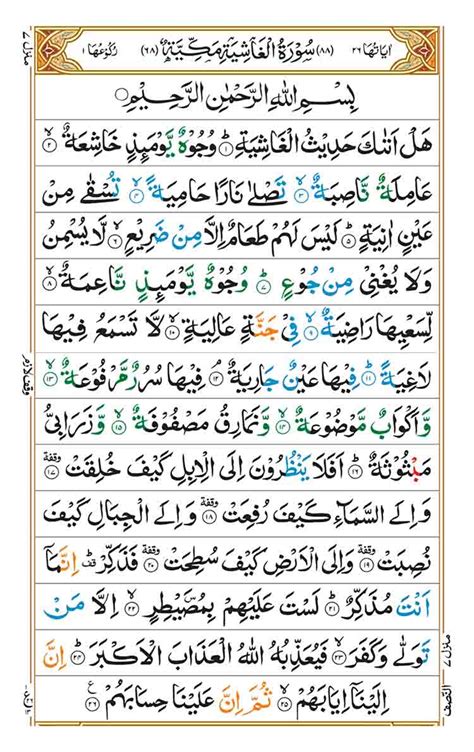 اٰيَاتُهَا ٢٦ (٨٨) سُوْرَةُ الْغَاشِيَةِ مَكِّيَّةٌ (٦٨) رُكُوْعُهَا ١
بِسْمِ اللّٰهِ الرَّحْمٰنِ الرَّحِيْمِ
هَلْ اَتٰىكَ حَدِيْثُ الْغَاشِيَةِ ۝١ وُجُوْهٌ يَّوْمَئِذٍ خَاشِعَةٌ ۝٢
عَامِلَةٌ نَّاصِبَةٌ ۝٣ تَصْلٰى نَارًا حَامِيَةً ۝٤ تُسْقٰى مِنْ
عَيْنٍ اٰنِيَةٍ ۝٥ لَيْسَ لَهُمْ طَعَامٌ اِلَّا مِنْ ضَرِيْعٍ ۝٦ لَّا يُسْمِنُ
وَلَا يُغْنِيْ مِنْ جُوْعٍ ۝٧ وُجُوْهٌ يَّوْمَئِذٍ نَّاعِمَةٌ ۝٨
لِّسَعْيِهَا رَاضِيَةٌ ۝٩ فِيْ جَنَّةٍ عَالِيَةٍ ۝١٠ لَّا تَسْمَعُ فِيْهَا
لَاغِيَةً ۝١١ فِيْهَا عَيْنٌ جَارِيَةٌ ۝١٢ فِيْهَا سُرُرٌ مَّرْفُوْعَةٌ ۝١٣
وَّاَكْوَابٌ مَّوْضُوْعَةٌ ۝١٤ وَّنَمَارِقُ مَصْفُوْفَةٌ ۝١٥ وَّزَرَابِيُّ
مَبْثُوْثَةٌ ۝١٦ اَفَلَا يَنْظُرُوْنَ اِلَى الْاِبِلِ كَيْفَ خُلِقَتْ وقفة ۝١٧
وَاِلَى السَّمَآءِ كَيْفَ رُفِعَتْ وقفة ۝١٨ وَاِلَى الْجِبَالِ كَيْفَ
نُصِبَتْ وقفة ۝١٩ وَاِلَى الْاَرْضِ كَيْفَ سُطِحَتْ وقفة ۝٢٠ فَذَكِّرْ قف اِنَّمَآ
اَنْتَ مُذَكِّرٌ ۝٢١ لَسْتَ عَلَيْهِمْ بِمُصَۜيْطِرٍ ۝٢٢ اِلَّا مَنْ
تَوَلّٰى وَكَفَرَ ۝٢٣ فَيُعَذِّبُهُ اللّٰهُ الْعَذَابَ الْاَكْبَرَ ۝٢٤ اِنَّ
اِلَيْنَآ اِيَابَهُمْ ۝٢٥ ثُمَّ اِنَّ عَلَيْنَا حِسَابَهُمْ ۝٢٦
منزل ٧
وقف لازم
منزل ٧
النصف